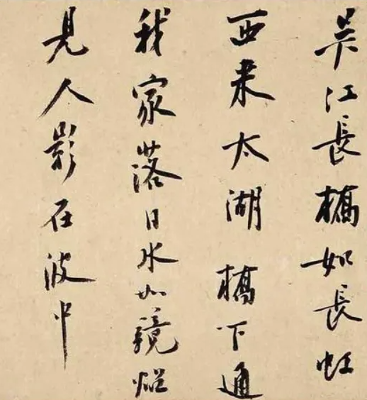 吴江長橋如長虹
西来太湖橋下通
我家落日水如鏡
見人影在波中